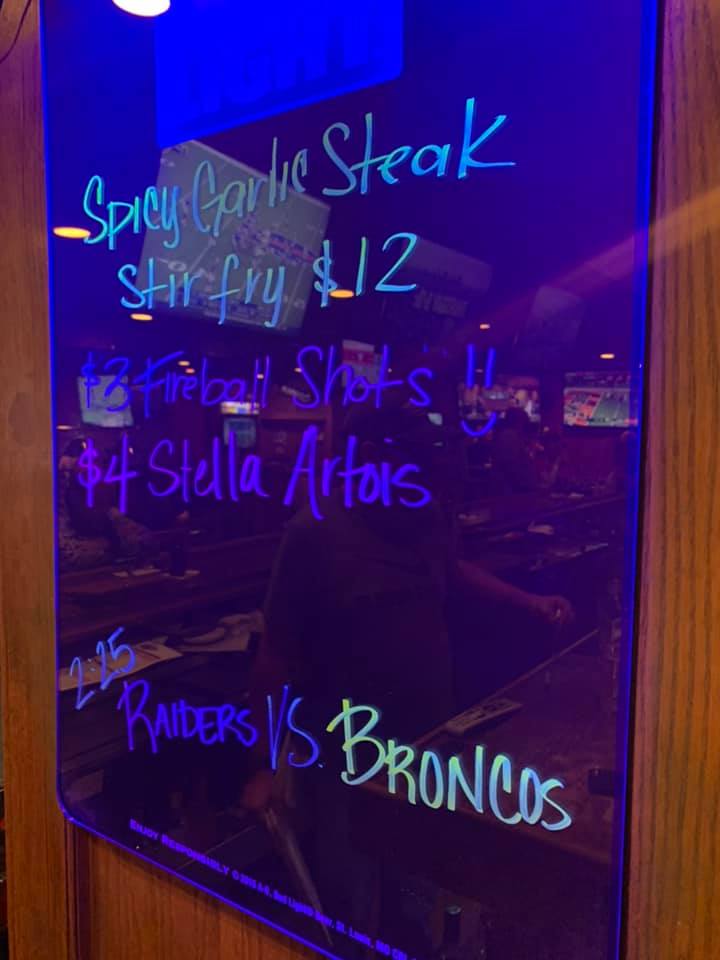 LIGHT
Spicy Garlic Steak
Stir fry $12
$3 Fireball Shots !!
$4 Stella Artois
2:25
RAIDERS VS. BRONCOS
ENJOY RESPONSIBLY © 2015 A-B, Bud Light® Beer, St. Louis, MO